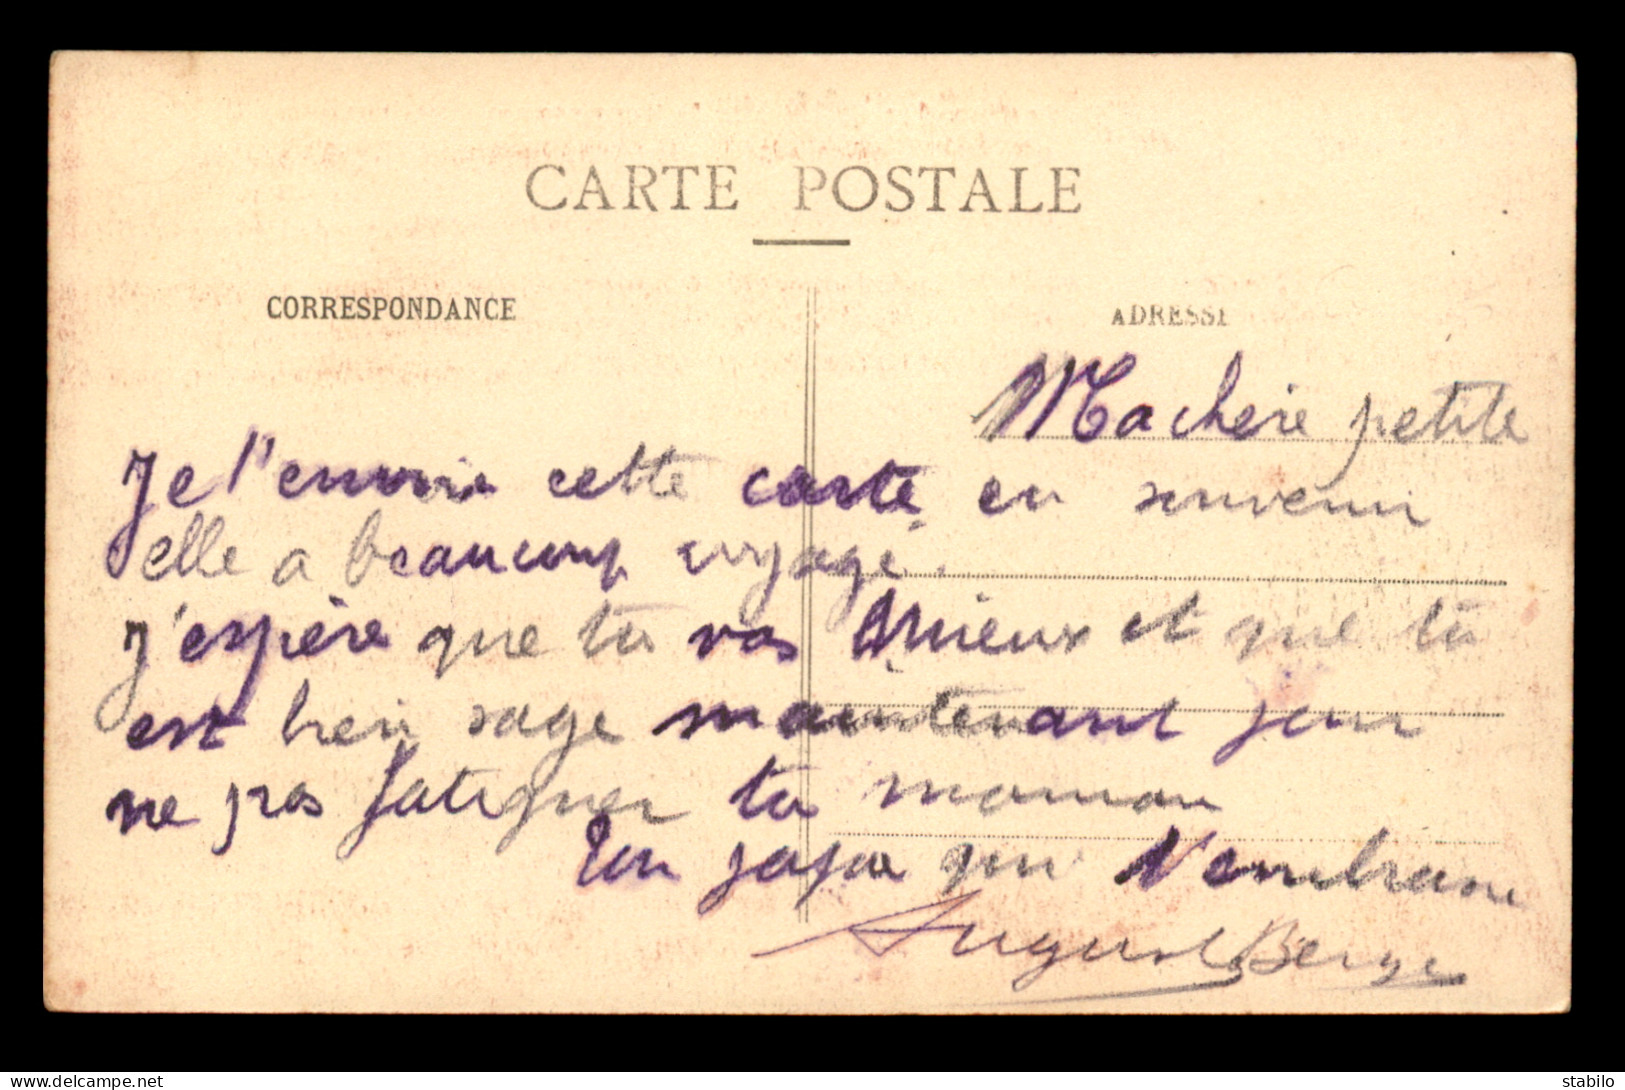 CARTE POSTALE
CORRESPONDANCE
ADRESSE
Ma chere petite
Je t'envoie cette carte en souvenir
elle a beaucoup voyagé.
j'espère que tu vas Mieux et que tu
est bien sage maintenant pour
ne pas fatiguer ta maman
Ton papa qui t'embrasse
August Berge
delcampe.net
stabilo